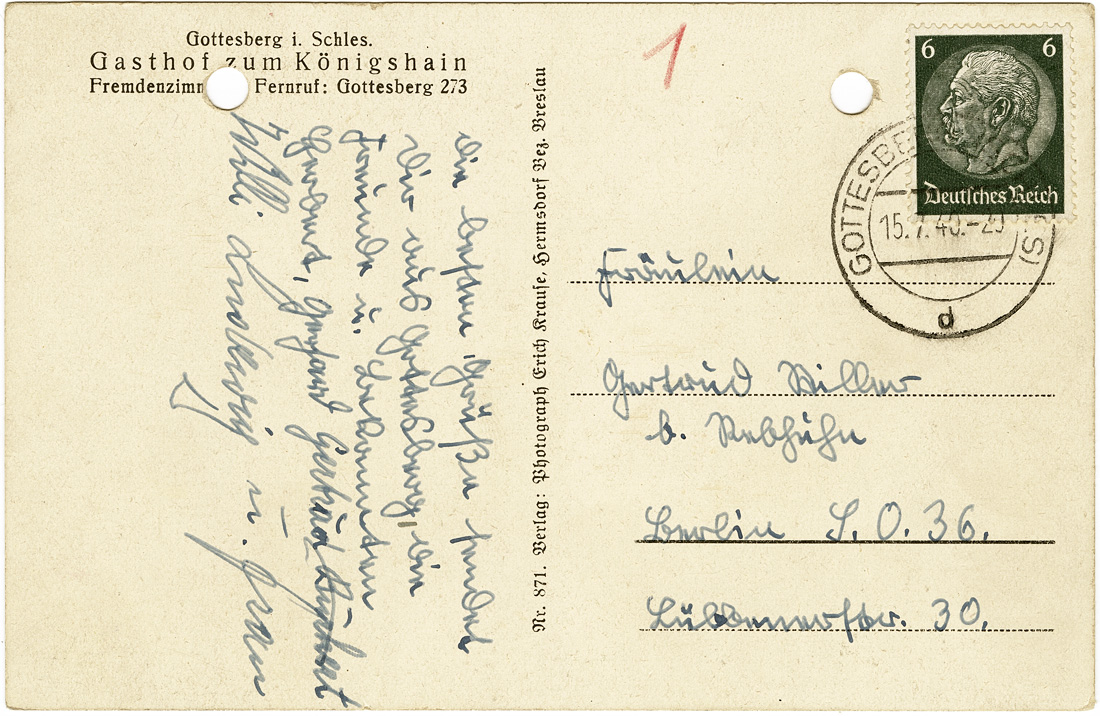 Gottesberg i. Schles.
Gasthof zum Königshain
Fremdenzimm Fernruf: Gottesberg 273
Die besten Grüße sendet
Dir aus Gottesberg, die
Freunde u. Bekannten
Herbert, Gerhard Gertrud
Willi Ludewig u. Frau
Nr. 871. Verlag: Photograph Erich Krause, Hermsdorf Bez. Breslau
1
6 6
Deutsches Reich
GOTTESBE (S
15.7.40.-2
d
Fräulein
Gertrud Willer
b. Rebhuhn
Berlin S.O. 36.
Lübbenerstr. 30.